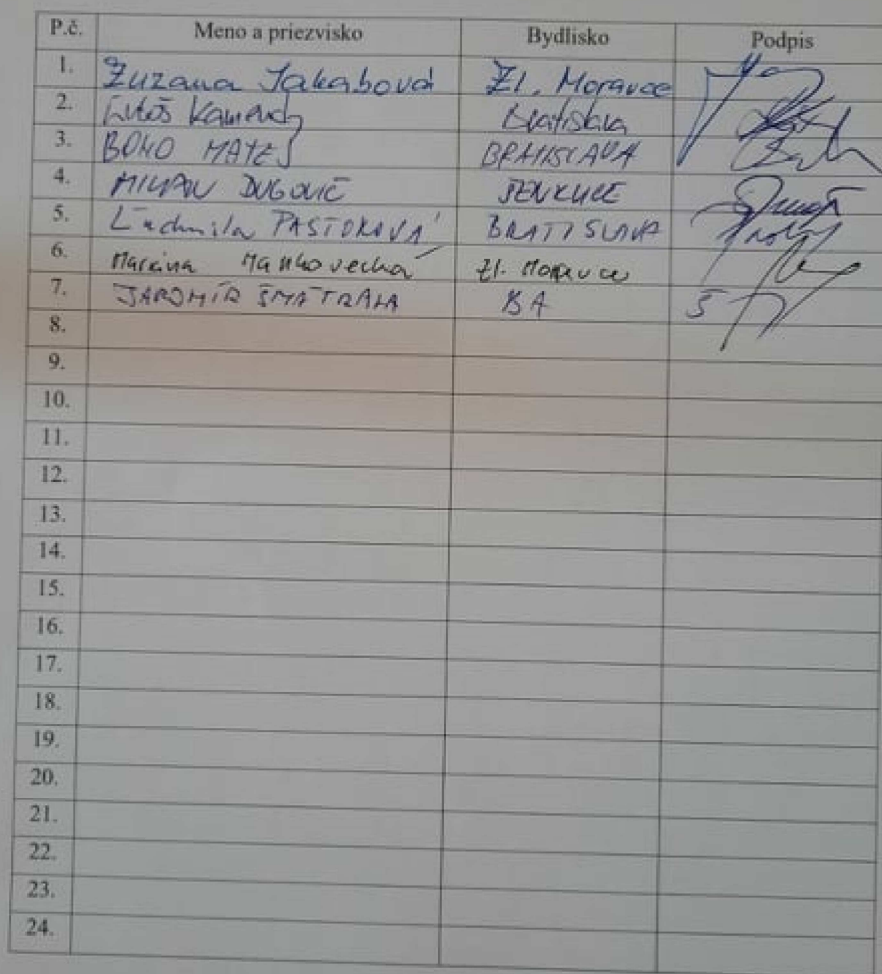 P.č. Meno a priezvisko Bydlisko Podpis
1. Zuzana Jakabová Zl. Moravce
2. Bratislava
3. BOHO MATEJ BRATISLAVA
4. MILAN DUGOVIČ
5. Ľudmila PASTOROVÁ BRATISLAVA
6. Zl. Moravce
7. JAROMÍR ŠMATRALA BA
8.
9.
10.
11.
12.
13.
14.
15.
16.
17.
18.
19.
20.
21.
22.
23.
24.